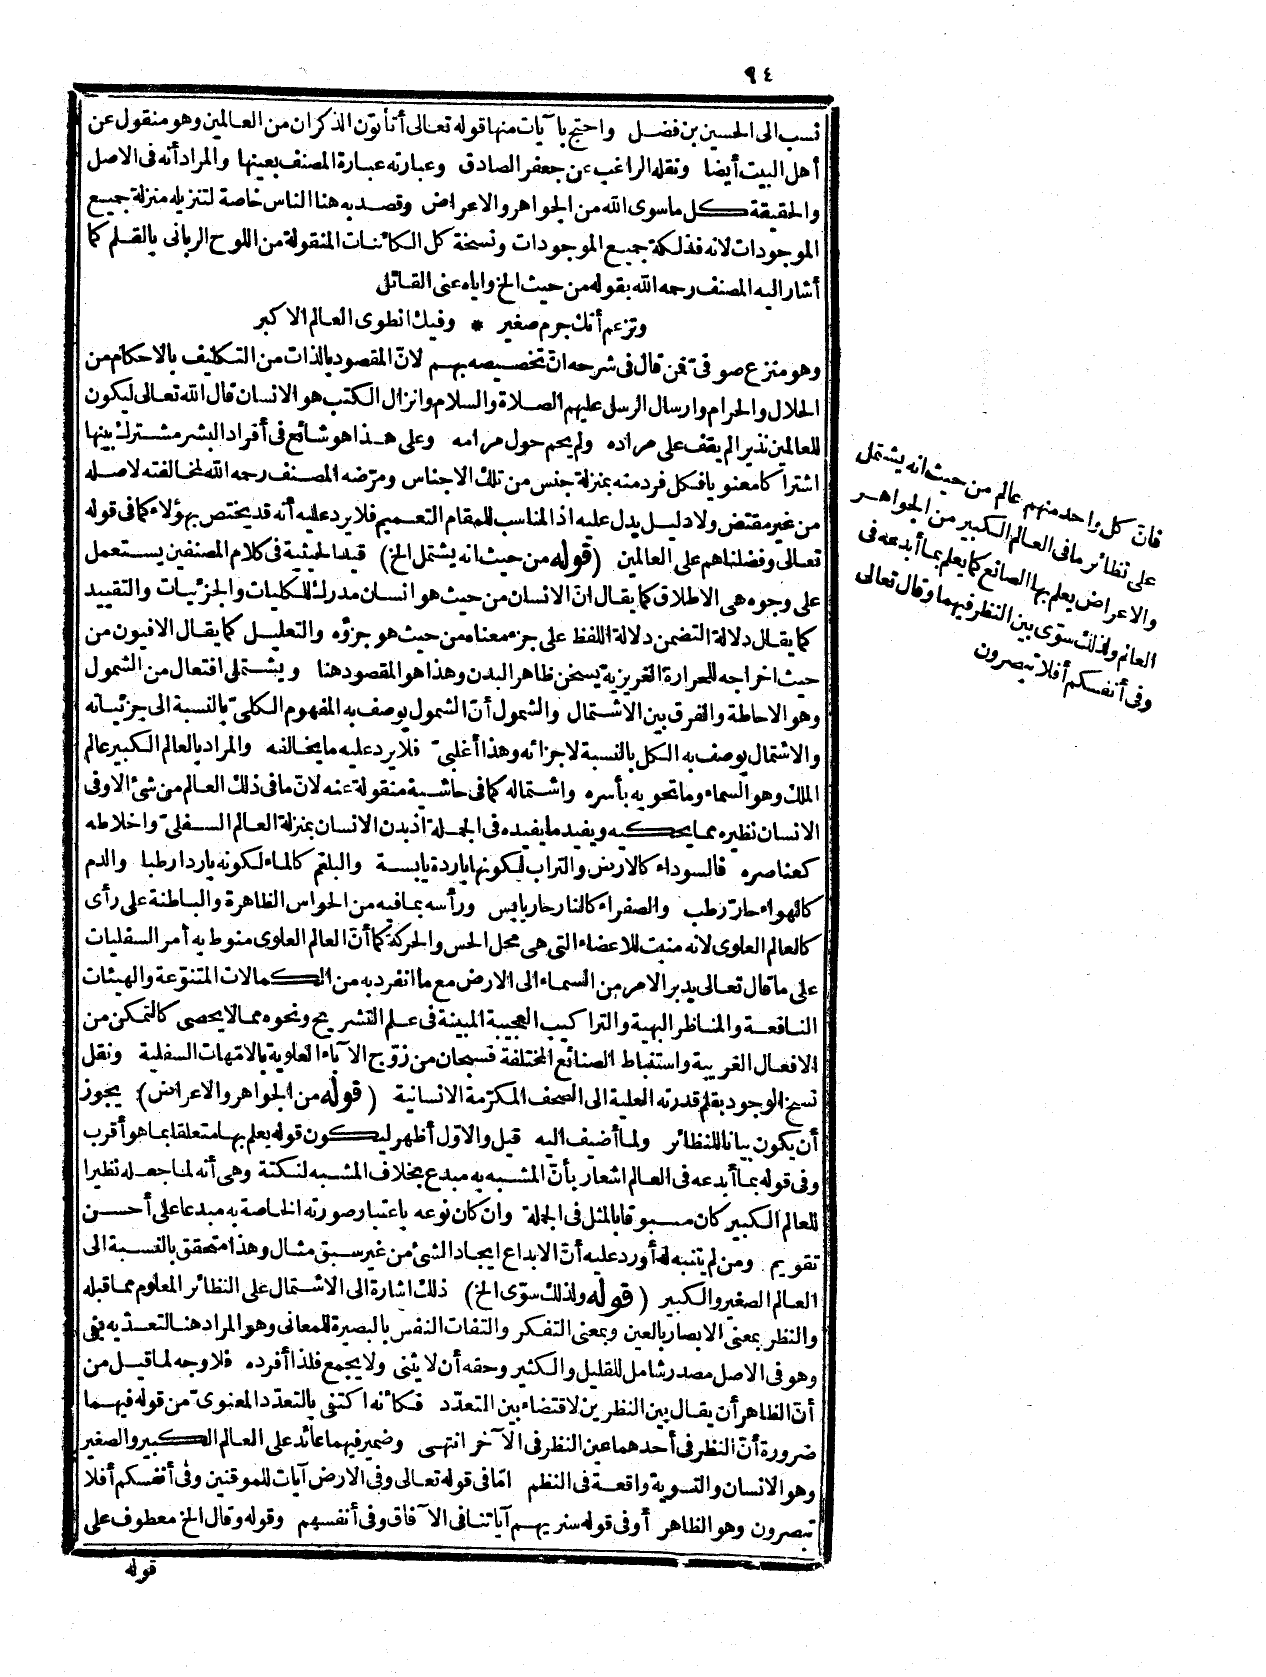 ٩٤
نسب الى الحسين بن فضل واحتج بآيات منها قوله تعالى أتأتون الذكران من العالمين وهو منقول عن
أهل البيت أيضا ونقله الراغب عن جعفر الصادق وعبارته عبارة المصنف بعينها والمراد أنه فى الاصل
والحقيقة كل ما سوى الله من الجواهر والاعراض وقصد به هنا الناس خاصة لتنزيله منزلة جميع
الموجودات لانه فذلكة جميع الموجودات ونسخة كل الكائنات المنقولة من اللوح الربانى بالقلم كما
أشار اليه المصنف رحمه الله بقوله من حيث الخ واياه عنى القائل
وتزعم أنك جرم صغير * وفيك انطوى العالم الاكبر
وهو منزع صوفىّ فمن قال فى شرحه انّ تخصيصه بهم لانّ المقصود بالذات من التكليف بالاحكام من
الحلال والحرام وارسال الرسل عليهم الصلاة والسلام وانزال الكتب هو الانسان قال الله تعالى ليكون
للعالمين نذيرا لم يقف على مراده ولم يحم حول مرامه وعلى هذا هو شائع فى أفراد البشر مشترك بينها
اشتراكا معنويا فكل فرد منه بمنزلة جنس من تلك الاجناس ومرّضه المصنف رحمه الله لمخالفته لاصله
من غير مقتض ولا دليل يدل عليه اذ المناسب للمقام التعميم فلا يرد عليه أنه قد يختص بهؤلاء كما فى قوله
تعالى وفضلناهم على العالمين (قوله من حيث انه يشتمل الخ) قيد الحيثية فى كلام المصنفين يستعمل
على وجوه هى الاطلاق كما يقال انّ الانسان من حيث هو انسان مدرك للكليات والجزئيات والتقييد
كما يقال دلالة التضمن دلالة اللفظ على جزء معناه من حيث هو جزؤه والتعليل كما يقال الافيون من
حيث اخراجه للحرارة الغريزية يسخن ظاهر البدن وهذا هو المقصود هنا ويشتمل افتعال من الشمول
وهو الاحاطة والفرق بين الاشتمال والشمول أنّ الشمول يوصف به المفهوم الكلىّ بالنسبة الى جزئياته
والاشتمال يوصف به الكل بالنسبة لاجزائه وهذا أغلبىّ فلا يرد عليه ما يخالفه والمراد بالعالم الكبير عالم
الملك وهو السماء وما تحويه بأسره واشتماله كما فى حاشية منقولة عنه لانّ ما فى ذلك العالم من شئ الا وفى
الانسان نظيره مما يحكيه ويفيد ما يفيده فى الجملة اذ بدن الانسان بمنزلة العالم السفلىّ واخلاطه
كعناصره فالسوداء كالارض والتراب لكونها باردة يابسة والبلغم كالماء لكونه باردا رطبا والدم
كالهواء حارّ رطب والصفراء كالنار حار يابس ورأسه بما فيه من الحواس الظاهرة والباطنة على رأى
كالعالم العلوى لانه منبت للاعضاء التى هى محل الحس والحركة كما أنّ العالم العلوى منوط به أمر السفليات
على ما قال تعالى يدبر الامر من السماء الى الارض مع ما انفرد به من الكمالات المتنوّعة والهيئات
النافعة والمناظر البهية والتراكيب العجيبة المبينة فى علم التشريح ونحوه مما لا يحصى كالتمكن من
الافعال الغريبة واستنباط الصنائع المختلفة فسبحان من زوّج الآباء العلوية بالامّهات السفلية ونقل
نسخ الوجود بقلم قدرته العلية الى الصحف المكرّمة الانسانية (قوله من الجواهر والاعراض) يجوز
أن يكون بيانا للنظائر ولما أضيف اليه قيل والاوّل أظهر ليكون قوله يعلم بها متعلقا بما هو أقرب
وفى قوله بما أبدعه فى العالم اشعار بأنّ المشبه به مبدع بخلاف المشبه لنكتة وهى أنه لما جعله نظيرا
للعالم الكبير كان مسبوقا بالمثل فى الجملة وان كان نوعه باعتبار صورته الخاصة به مبدعا على أحسن
تقويم ومن لم يتنبه له أورد عليه أنّ الابداع ايجاد الشئ من غير سبق مثال وهذا متحقق بالنسبة الى
العالم الصغير والكبير (قوله ولذلك سوّى الخ) ذلك اشارة الى الاشتمال على النظائر المعلوم مما قبله
والنظر بمعنى الابصار بالعين وبمعنى التفكر والتفات النفس بالبصيرة للمعانى وهو المراد هنا لتعدّيه بفى
وهو فى الاصل مصدر شامل للقليل والكثير وحقه أن لا يثنى ولا يجمع فلذا أفرده فلا وجه لما قيل من
أنّ الظاهر أن يقال بين النظرين لاقتضاء بين التعدّد فكأنه اكتفى بالتعدّد المعنوىّ من قوله فيهما
ضرورة أنّ النظر فى أحدهما عين النظر فى الآخر انتهى وضمير فيهما عائد على العالم الكبير والصغير
وهو الانسان والتسوية واقعة فى النظم امّا فى قوله تعالى وفى الارض آيات للموقنين وفى أنفسكم أفلا
تبصرون وهو الظاهر أو فى قوله سنريهم آياتنا فى الآفاق وفى أنفسهم وقوله وقال الخ معطوف على
قوله
فانّ كل واحد منهم عالم من حيث انه يشتمل
على نظائر ما فى العالم الكبير من الجواهر
والاعراض يعلم بها الصانع كما يعلم بما أبدعه فى
العالم ولذلك سوّى بين النظر فيهما وقال تعالى
وفى أنفسكم أفلا تبصرون